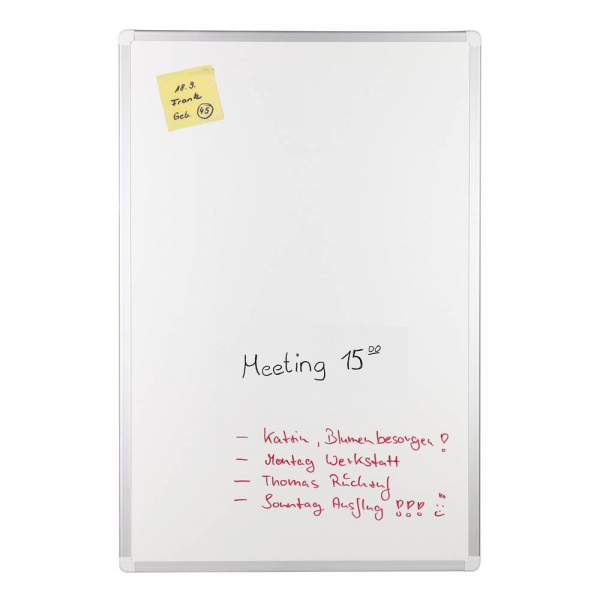 18.9.
Frank
Geb. 45
Meeting 15 00
– Katrin, Blumen besorgen!
– Montag Werkstatt
– Thomas Rückruf
– Sonntag Ausflug !!!